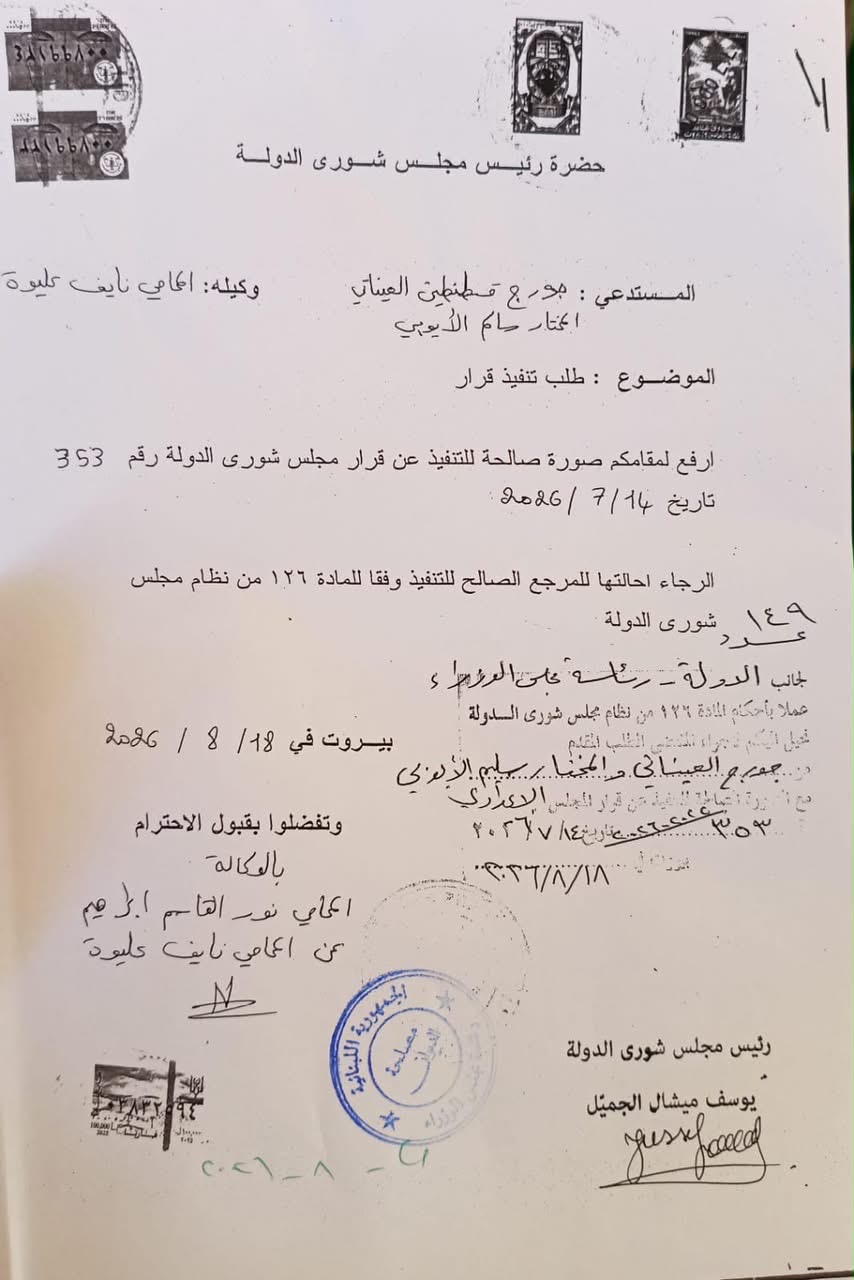 ٠٠٧٩٩١٢٤
٠٠٧٩٩١٢٣
حضرة رئيس مجلس شورى الدولة
المستدعي : جورج قسطنطين العيناتي
وكيله: المحامي نايف عليوة
المختار سليم الأيوبي
الموضوع : طلب تنفيذ قرار
ارفع لمقامكم صورة صالحة للتنفيذ عن قرار مجلس شورى الدولة رقم 353
تاريخ 14/ 7 /2026
الرجاء احالتها للمرجع الصالح للتنفيذ وفقا للمادة ١٢٦ من نظام مجلس
شورى الدولة
١٤٩
عدد
لجانب الدولة - رئاسة مجلس الوزراء
عملا بأحكام المادة ١٢٦ من نظام مجلس شورى الدولة
نحيل اليكم لاجراء المقتضى الطلب المقدم
من جورج العيناتي والمختار سليم الأيوبي
مع الصورة الصالحة للتنفيذ عن قرار المجلس الإعدادي
٣٥٣ تاريخ ٢٠٢٦/٧/١٤
٢٠٢٦/٨/١٨
بيروت في 18/ 8 / 2026
وتفضلوا بقبول الاحترام
بالوكالة
المحامي نور القاسم ابراهيم
عن المحامي نايف عليوة
الجمهورية اللبنانية
رئاسة مجلس الوزراء
مصلحة
الديوان
رئيس مجلس شورى الدولة
يوسف ميشال الجميّل
100,000